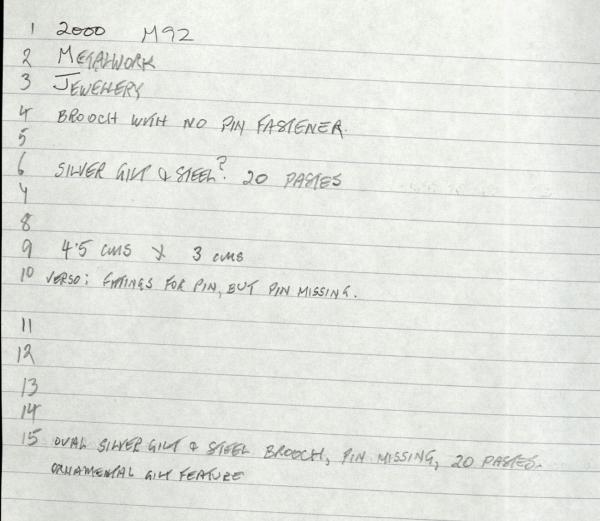 1 2000 M92
2 METALWORK
3 JEWELLERY
4 BROOCH WITH NO PIN FASTENER.
5
6 SILVER GILT & STEEL? 20 PASTES
7
8
9 4.5 CMS X 3 CMS
10 VERSO: FITTINGS FOR PIN, BUT PIN MISSING.
11
12
13
14
15 OVAL SILVER GILT & STEEL BROOCH, PIN MISSING, 20 PASTES.
ORNAMENTAL GILT FEATURE